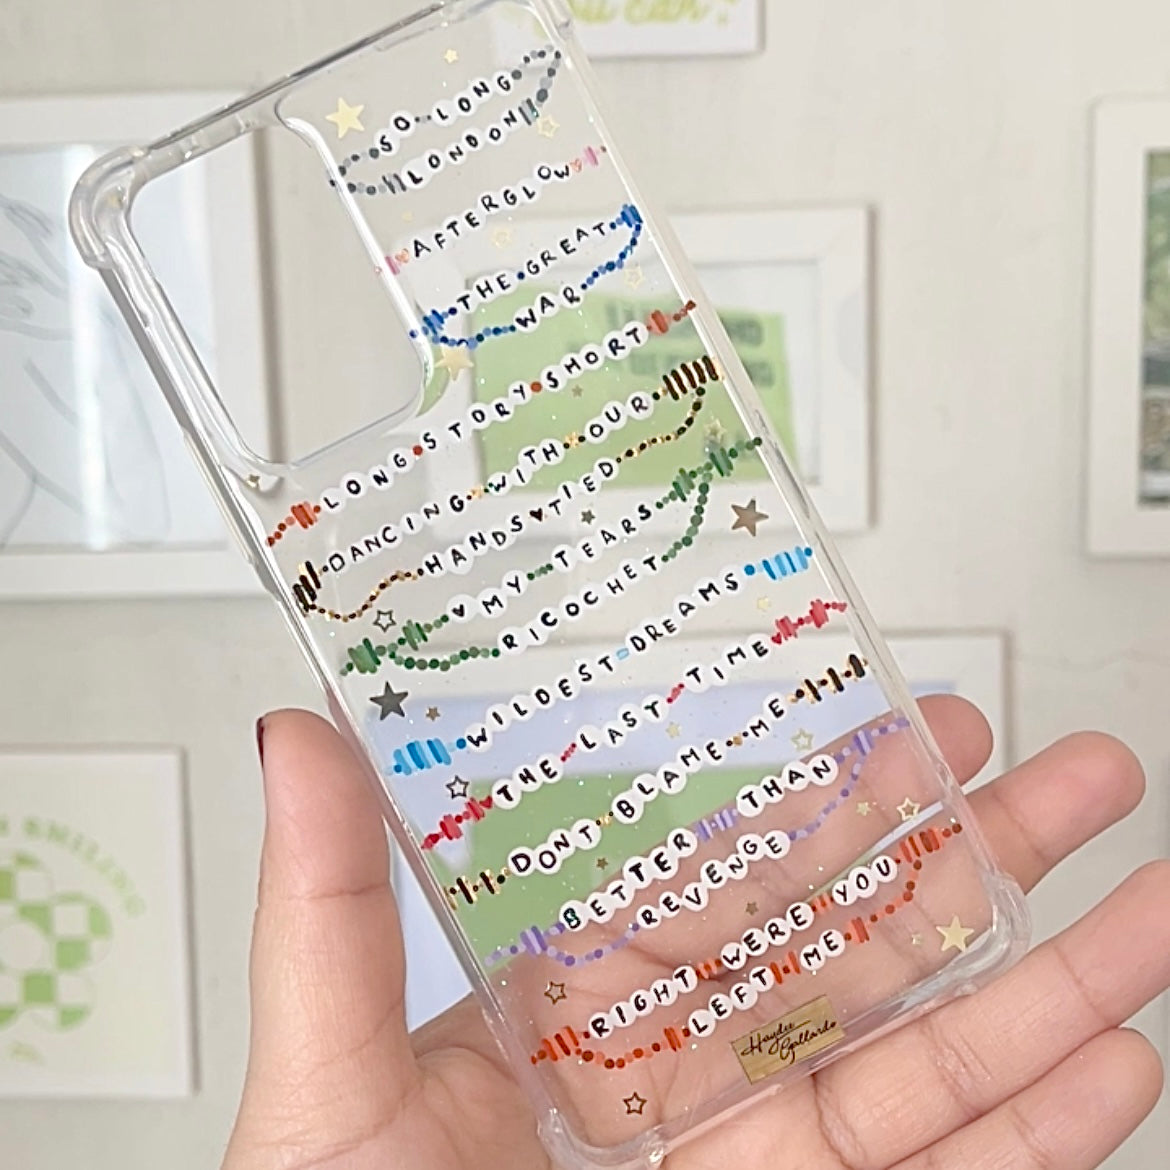 you can!
SO LONG
LONDON
AFTERGLOW
THE GREAT
WAR
LONG STORY SHORT
DANCING WITH OUR
HANDS TIED
MY TEARS
RICOCHET
WILDEST DREAMS
THE LAST TIME
DONT BLAME ME
BETTER THAN
REVENGE
RIGHT WERE YOU
LEFT ME
Haydee
Gallardo